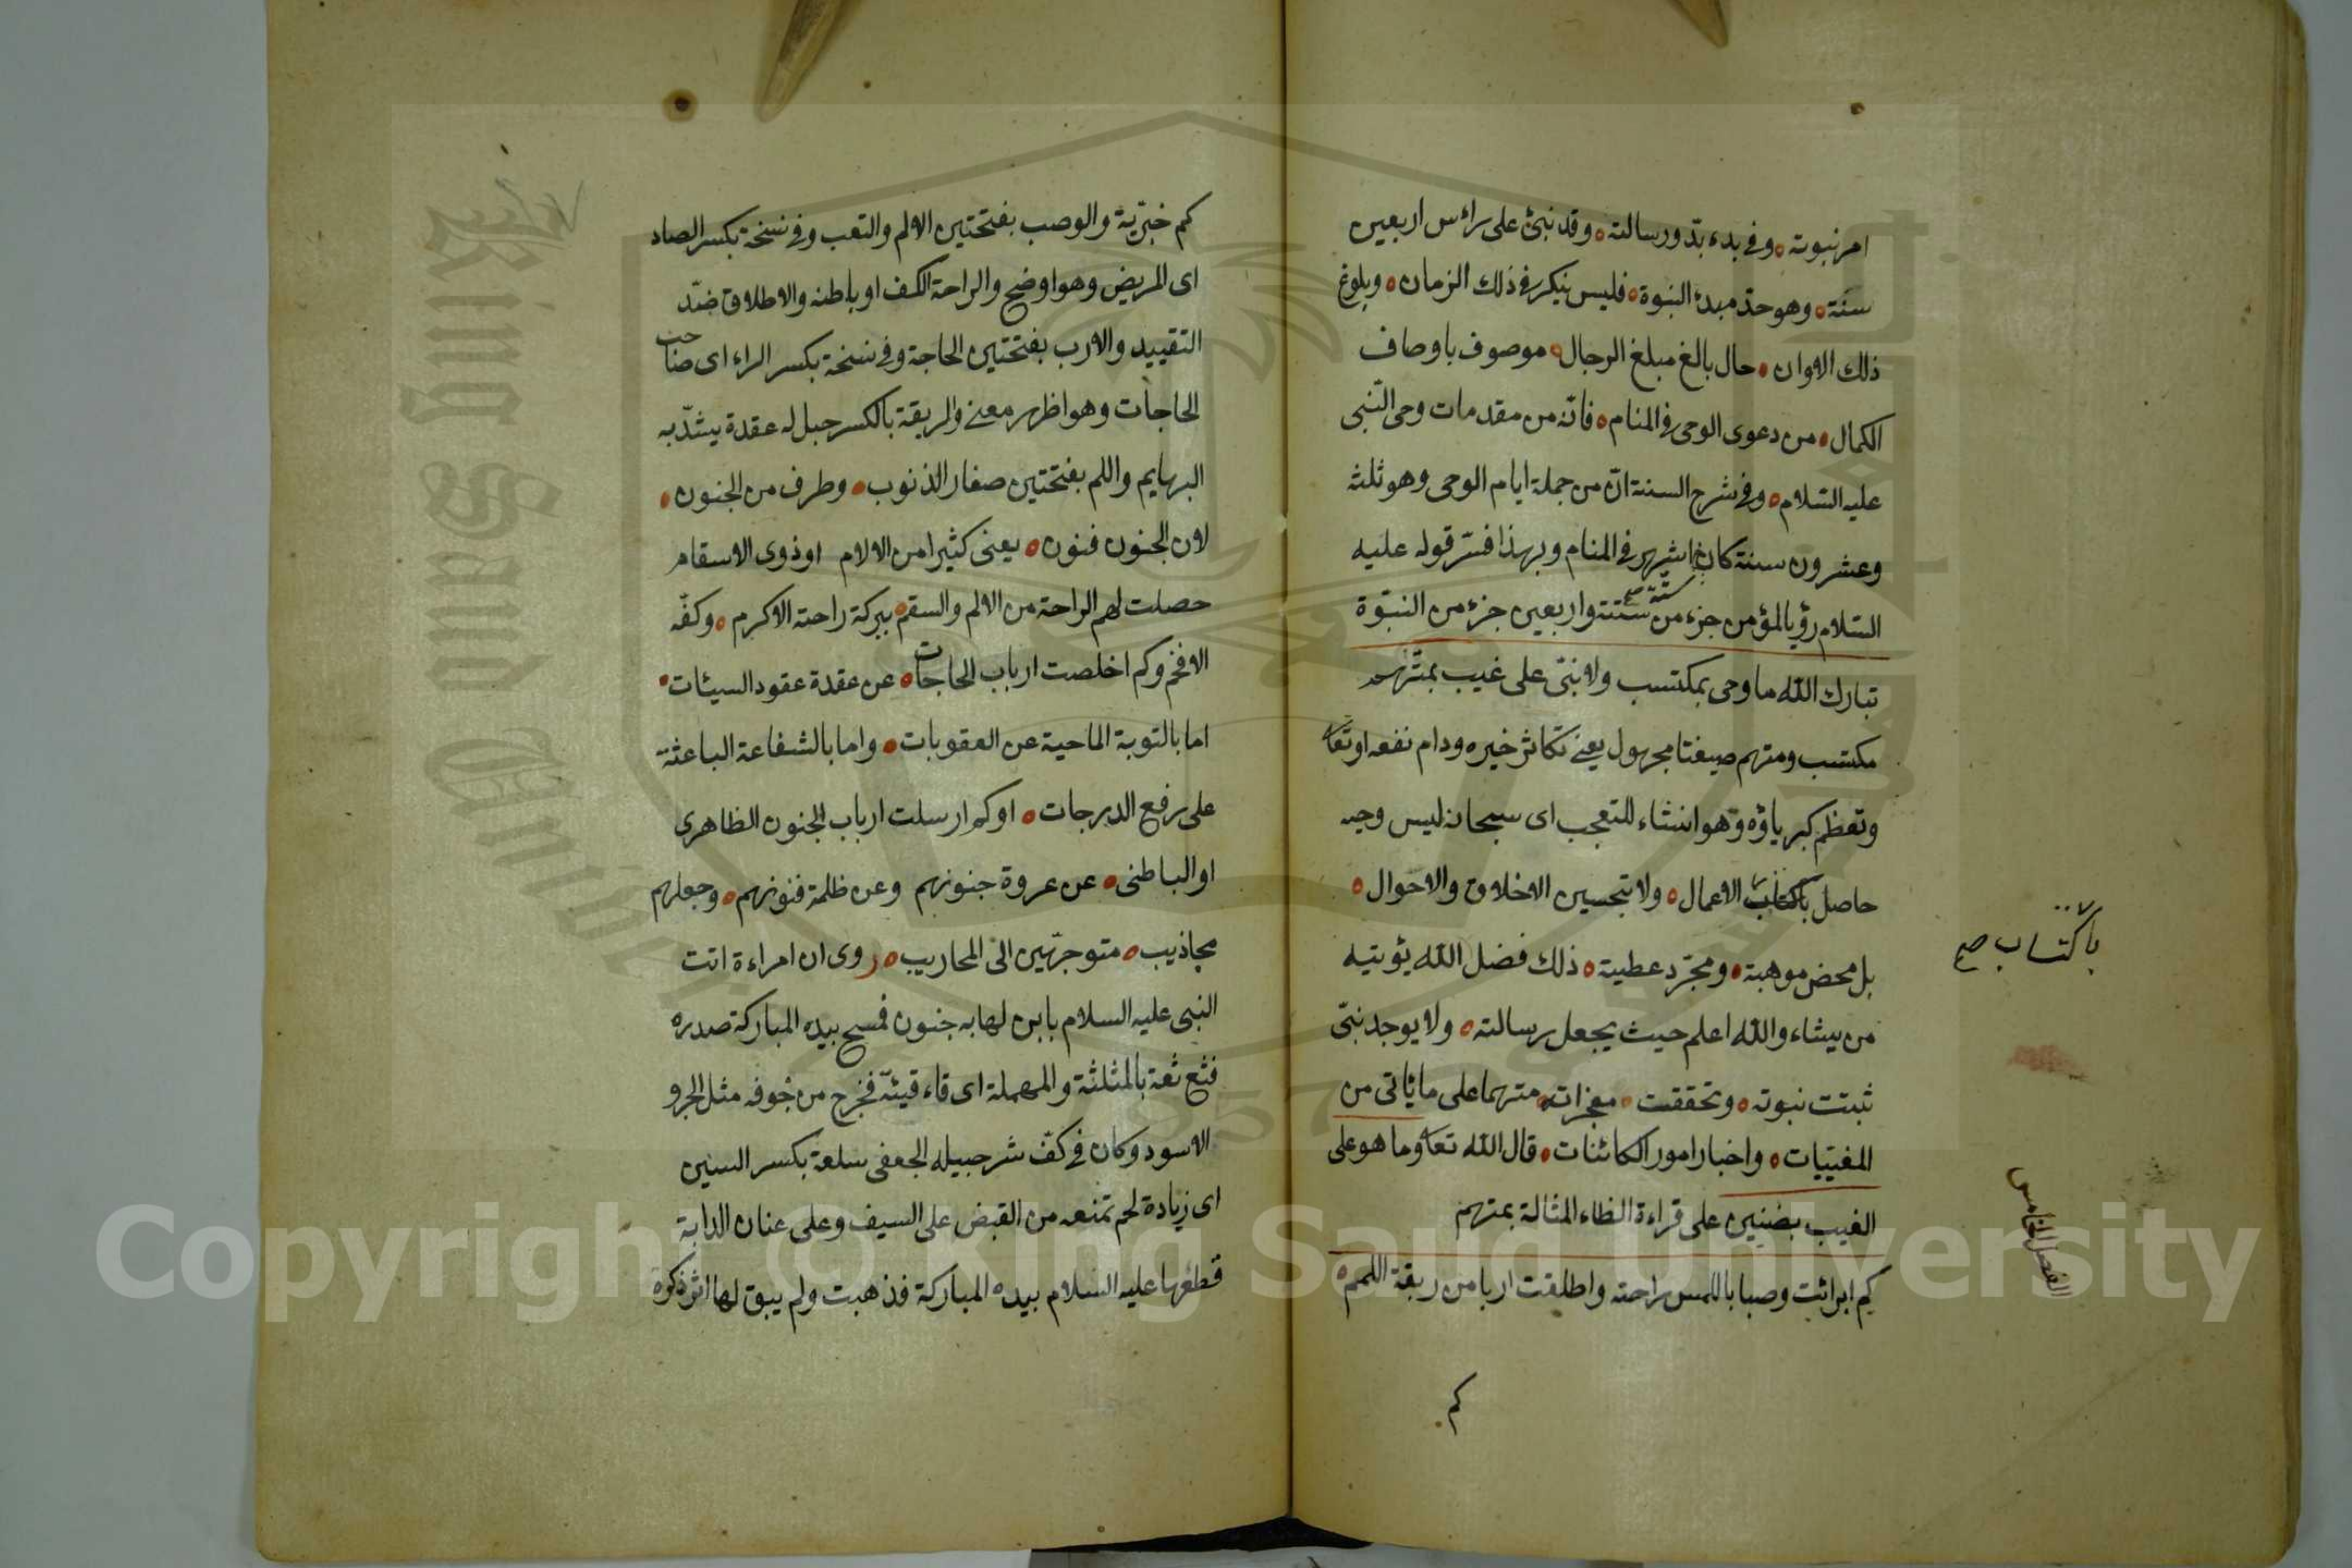 امر نبوته ٥ وفى بدء بدّو رسالته ٥ وقد نبئ على رائس اربعين
سنة ٥ وهو حدّ مبدئ النبوة ٥ فليس ينكر فى ذلك الزمان ٥ وبلوغ
ذلك الاوان ٥ حال بالغ مبلغ الرجال ٥ موصوف باوصاف
الكمال ٥ من دعوى الوحى فى المنام ٥ فانّه من مقدمات وحى النّبى
عليه السّلام ٥ وفى شرح السنة انّ من جملة ايام الوحى وهو ثلثة
وعشرون سنة كان اشهر فى المنام وبهذا فسّر قوله عليه
السّلام رؤيا المؤمن جزء من ستة واربعين جزء من النبوّة
ستّة صح
تبارك الله ما وحى بمكتسب ولا نبىّ على غيب بمتّهم
مكتسب ومتهم صيغتا مجهول يعنى تكاثر خيره ودام نفعه او تعا
وتعظم كبرياؤه وهو انشاء للتعجب اى سبحانه ليس وحيه
حاصل باكتاب الاعمال ٥ ولا بتحسين الاخلاق والاحوال ٥
باكتساب صح
بل محض موهبة ٥ ومجرّد عطية ٥ ذلك فضل الله يؤتيه
من يشاء والله اعلم حيث يجعل رسالته ٥ ولا يوجد نبىّ
ثبتت نبوته ٥ وتحققت ٥ معجزاته ٥ متهما على ما يأتى من
المغيّبات ٥ واخبار امور الكائنات ٥ قال الله تعا وما هو على
الغيب بضنين على قراءة الظاء المثالة بمتهم
الفصل الخامس
كم ابرائت وصبا باللمس راحته واطلقت اربا من ربقة اللمم ٥
كم
كم خبريّة والوصب بفتحتين الالم والتعب وفى نسخة بكسر الصاد
اى المريض وهو اوضح والراحة الكف او باطنه والاطلاق ضدّ
التقييد والارب بفتحتين الحاجة وفى نسخة بكسر الراء اى صاحب
الحاجات وهو اظهر معنى والربقة بالكسر حبل له عقدة يشدّ به
البهايم واللمم بفتحتين صغار الذنوب ٥ وطرف من الجنون ٥
لان الجنون فنون ٥ يعنى كثيرا من الالام او ذوى الاسقام
حصلت لهم الراحة من الالم والسقم ٥ ببركة راحته الاكرم ٥ وكفّه
الافخم وكم اخلصت ارباب الحاجات ٥ عن عقدة عقود السيئات ٥
اما بالتوبة الماحية عن العقوبات ٥ واما بالشفاعة الباعثة
على رفع الدرجات ٥ او كم ارسلت ارباب الجنون الظاهرى
او الباطنى ٥ عن عروة جنونهم وعن ظلمة فنونهم ٥ وجعلهم
مجاذيب ٥ متوجهّين الى المحاريب ٥ روى ان امراءة اتت
النبى عليه السلام بابن لها به جنون فمسح بيده المباركة صدره
فثع ثعة بالمثلثة والمهملة اى قاء قيئة فخرج من جوفه مثل الجرو
الاسود وكان فى كفّ شرحبيله الجعفى سلعة بكسر السين
اى زيادة لحم تمنعه من القبض على السيف وعلى عنان الدابة
قطعها عليه السلام بيده المباركة فذهبت ولم يبق لها اثر ذكره